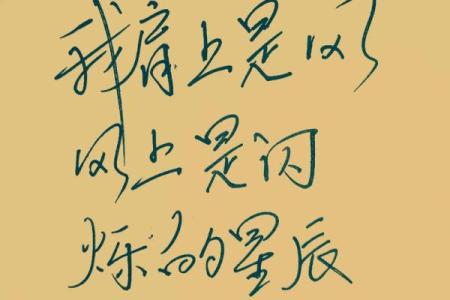 我肩上是风
风上是闪
烁的星辰